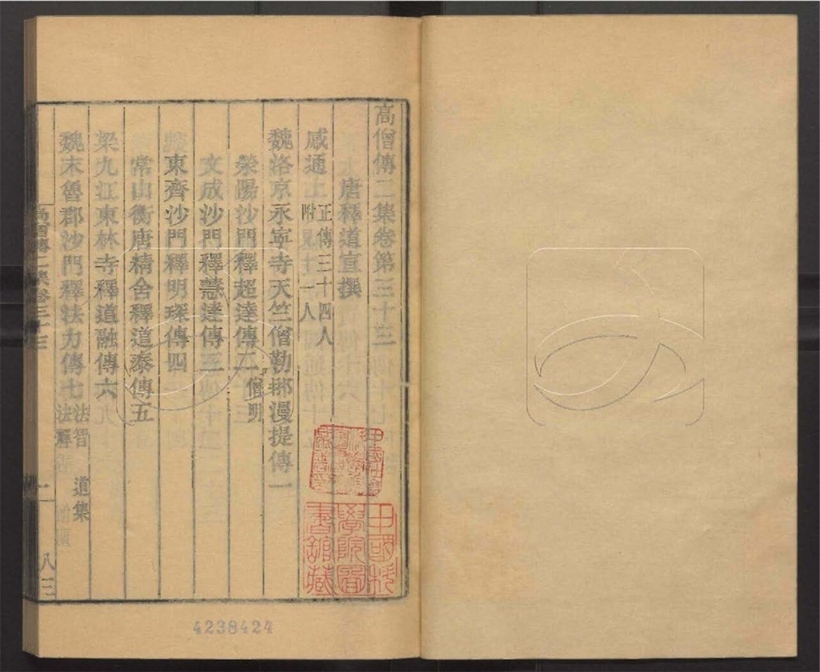 高僧傳二集卷第三十三
唐釋道宣撰
感通上 正傳三十四人
附見十一人
魏洛京永寧寺天竺僧勒那漫提傳一
滎陽沙門釋超達傳二 僧明
文成沙門釋慧達傳三
東齊沙門釋明琛傳四
常山衡唐精舍釋道泰傳五
梁九江東林寺釋道融傳六
魏末魯郡沙門釋法力傳七 法智 道集
法禪
高僧傳二集卷三十三
一
中國科學院圖書館藏
4238424